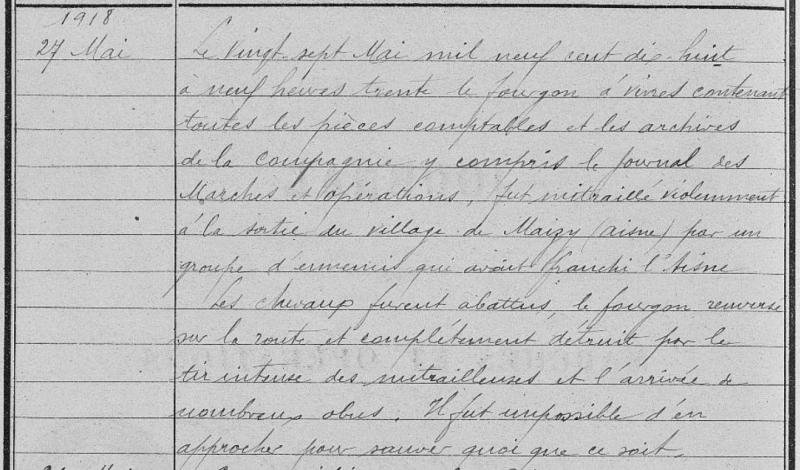 1918
27 Mai
Le vingt sept Mai mil neuf cent dix-huit
à neuf heures trente le fourgon à vivres contenant
toutes les pièces comptables et les archives
de la Compagnie y compris le Journal des
Marches et opérations, fut mitraillé violemment
à la sortie du village de Maizy (aisne) par un
groupe d'ennemis qui avait franchi l'Aisne
Les chevaux furent abattus, le fourgon renversé
sur la route et complétement détruit par le
tir intense des mitrailleuses et l'arrivée de
nombreux obus. Il fut impossible d'en
approcher pour sauver quoi que ce soit.